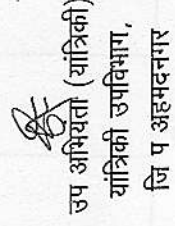 उप अभियंता (यांत्रिकी)
यांत्रिकी उपविभाग,
जि प अहमदनगर